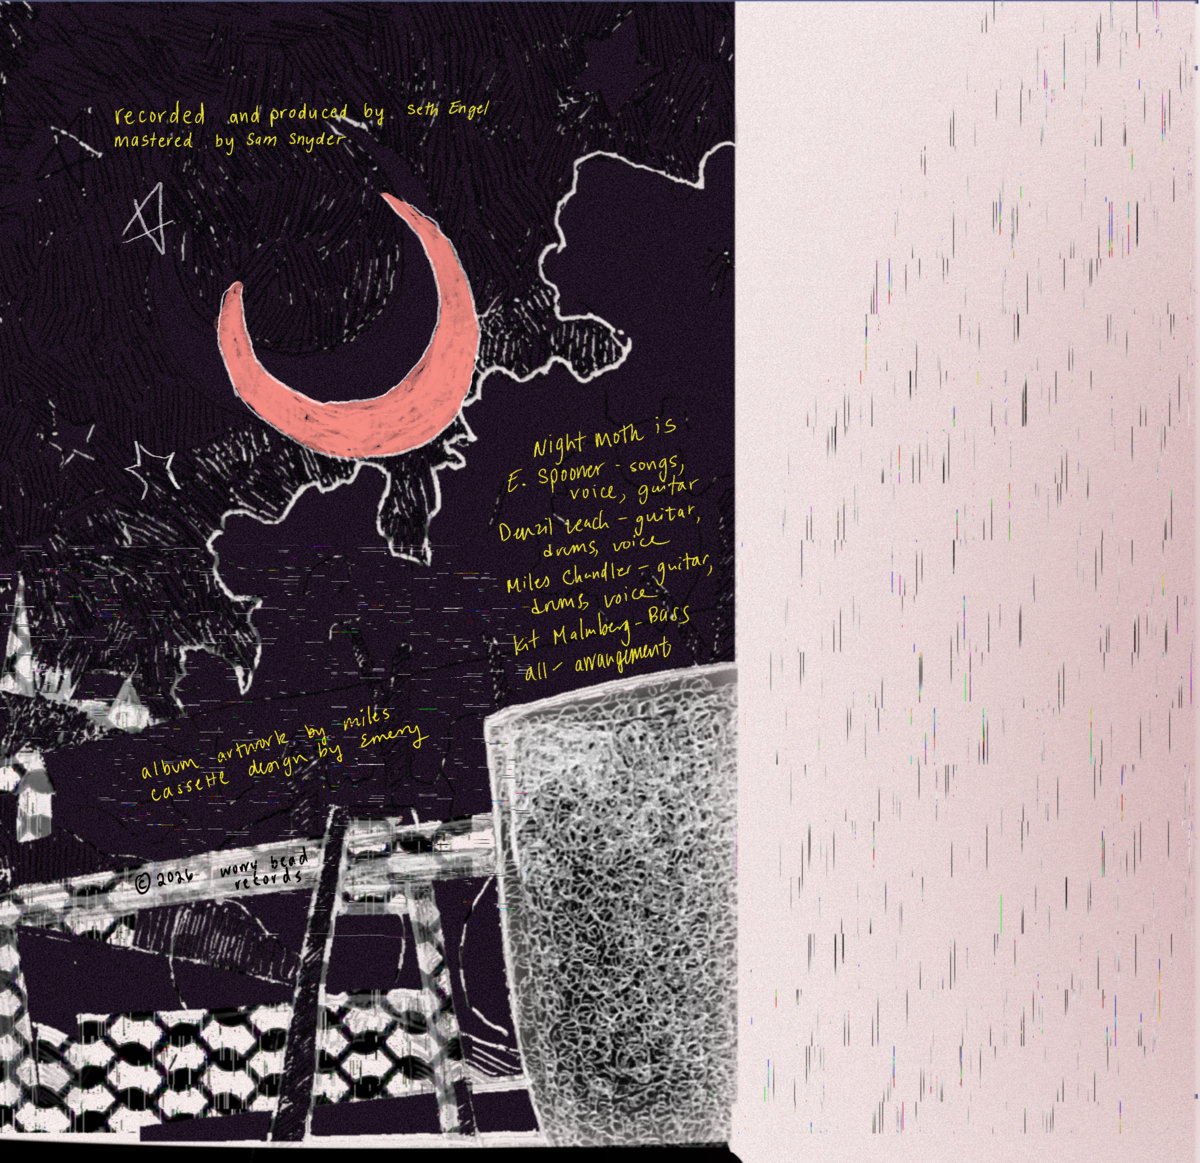 recorded and produced by Seth Engel
mastered by Sam Snyder
Night Moth is
E. Spooner - songs,
voice, guitar
Denzil Leach - guitar,
drums, voice
Miles Chandler - guitar,
drums, voice
Kit Malmberg - Bass
all - arrangements
album artwork by miles
cassette design by Emery
© 2026 worry bead
records